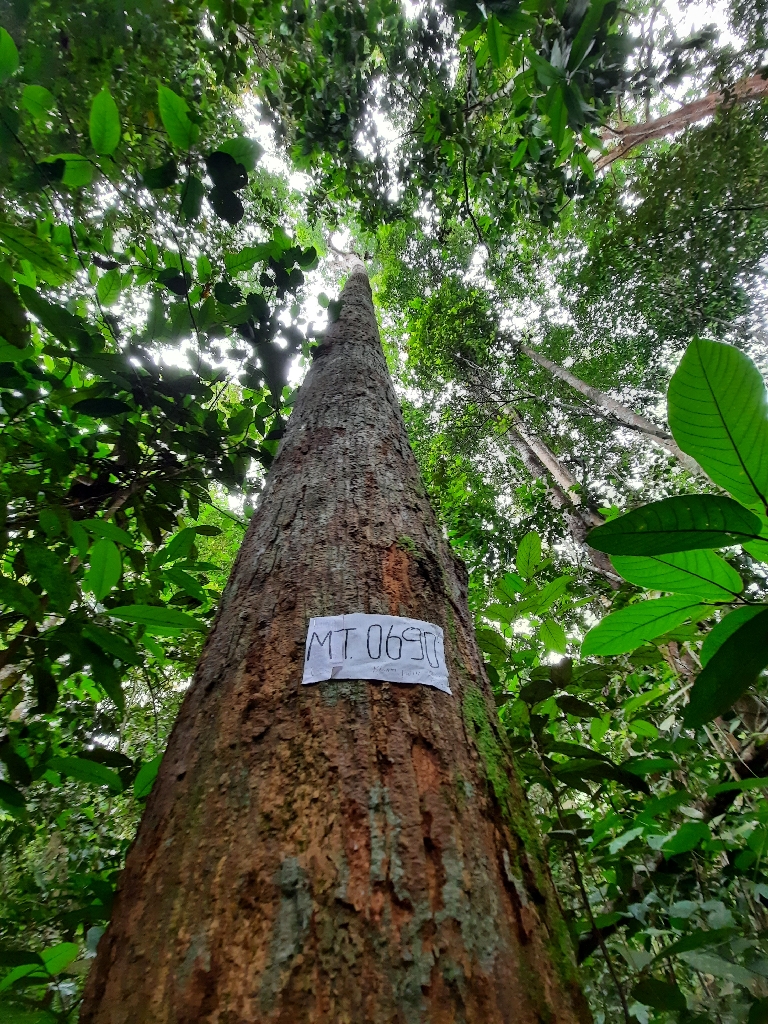 MT 0690